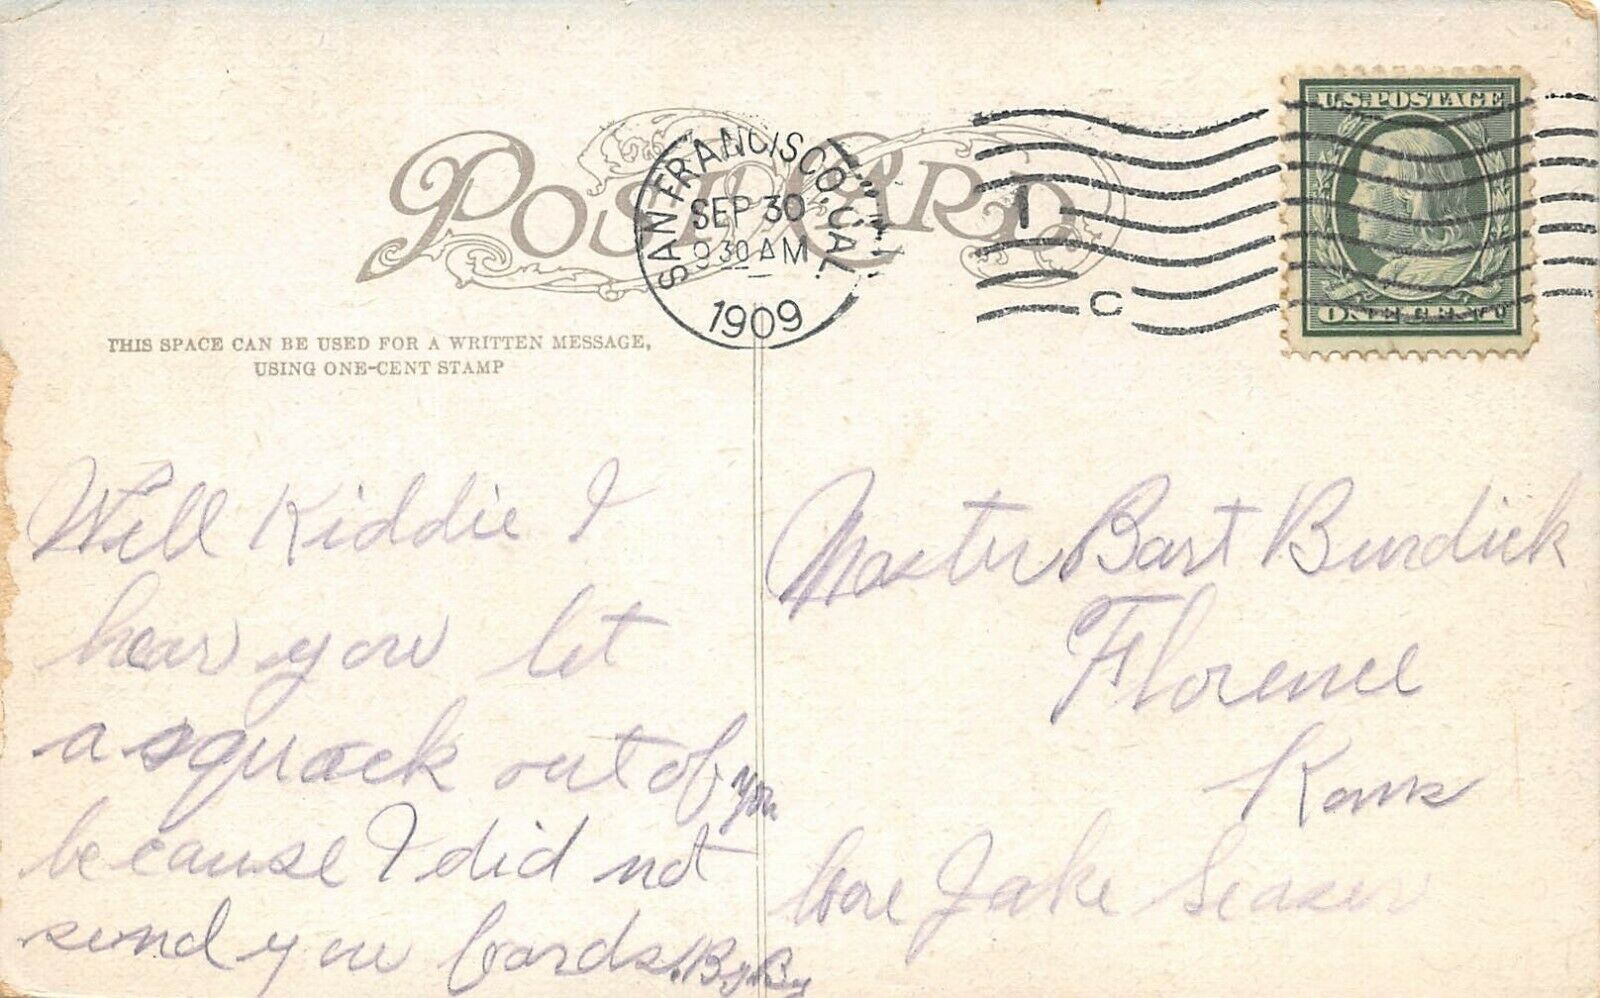 POST CARD
SAN FRANCISCO, CAL.
SEP 30
930 AM
1909
C
U.S. POSTAGE
ONE CENT
THIS SPACE CAN BE USED FOR A WRITTEN MESSAGE,
USING ONE-CENT STAMP
Will Kiddie I
hear you let
a squack out of you
because I did not
send you cards. By By
Master Bart Burdick
Florence
Kans
Jake